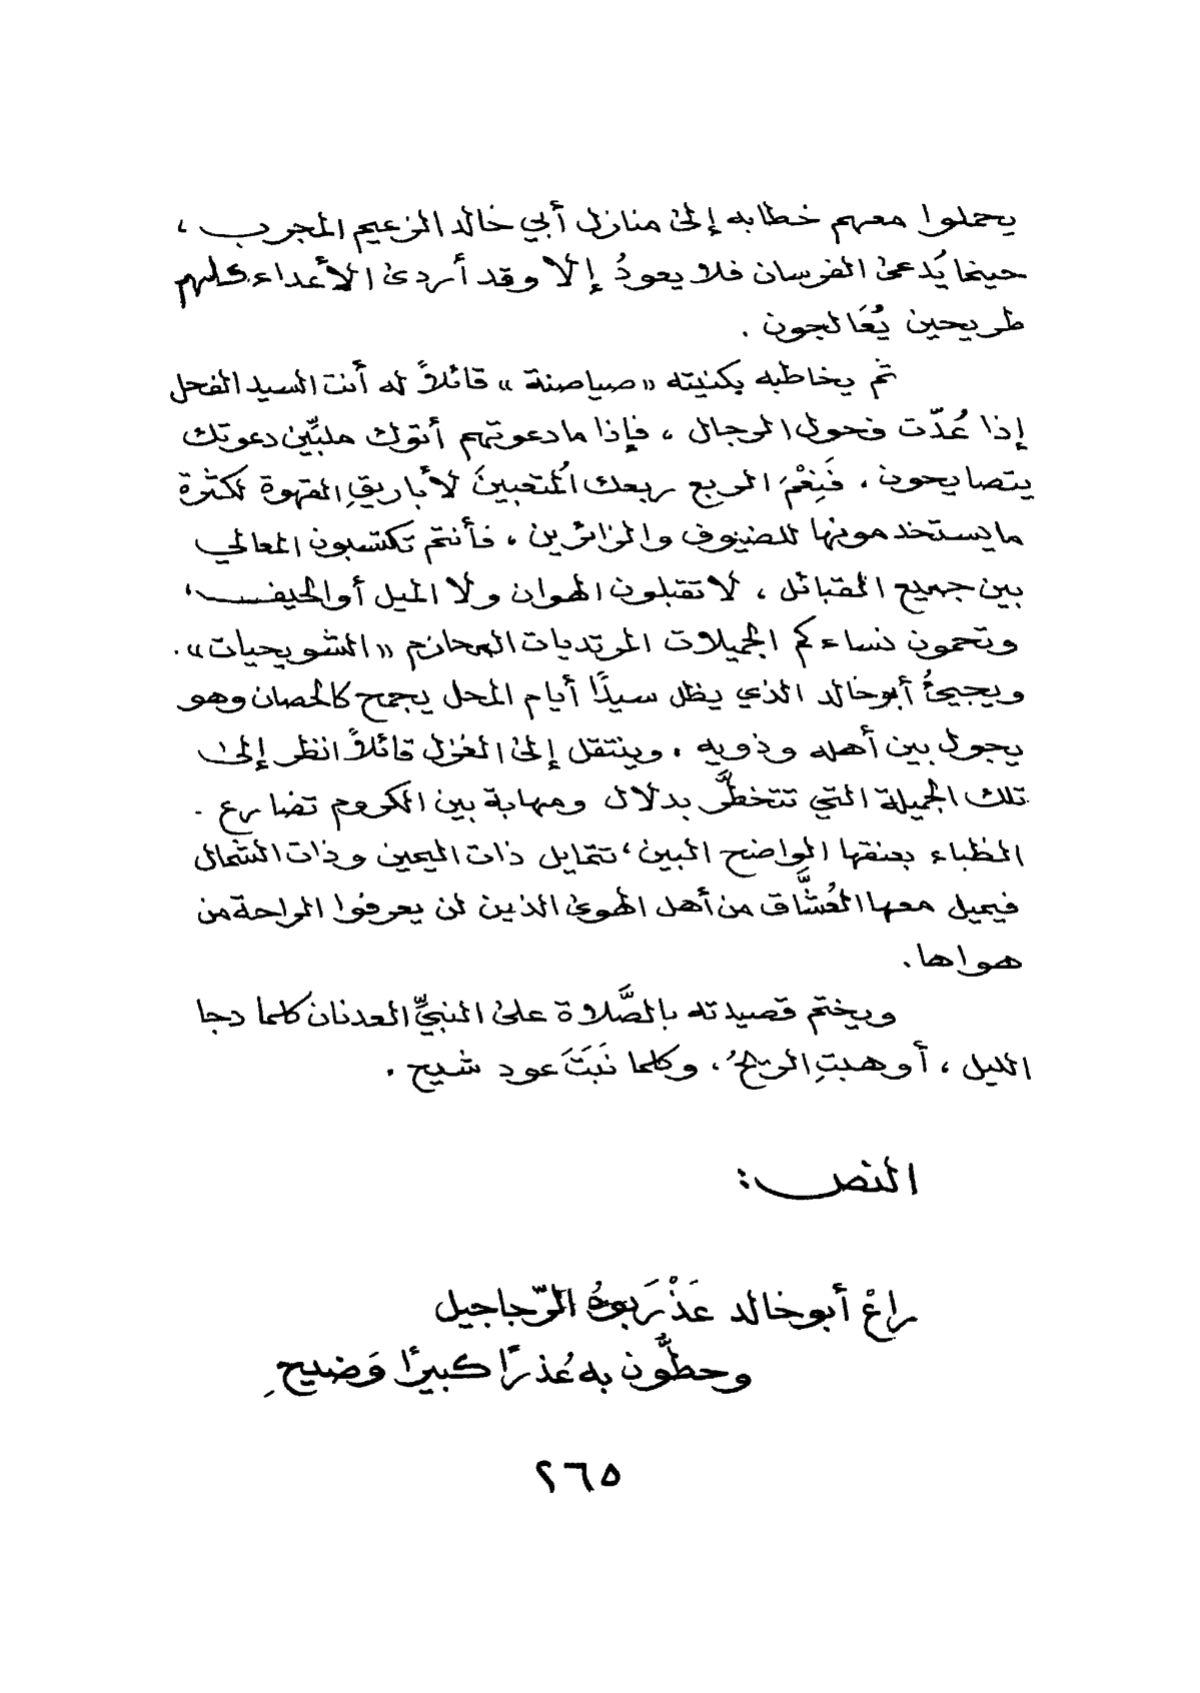 يحملوا معهم خطابه إلى منازل أبي خالد الزعيم المجرب ،
حينما يُدعى الفرسان فلا يعودُ إلا وقد أردى الأعداء كلهم
طريحين يُعَالجون .
ثم يخاطبه بكنيته «صياصنة» قائلاً له أنت السيد الفحل
إذا عُدّت فحول الرجال ، فإذا مادعوتهم أتوك ملبِّين دعوتك
يتصايحون . فَنِعْمَ الربع ربعك اُلمتعبينَ لأباريقِ القهوة لكثرة
مايستخدمونها للضيوف والزائرين ، فأنتم تكتسبون المعالي
بين جميع القبائل ، لا تقبلون الهوان ولا الميل أو الحيف ،
وتحمون نساءكم الجميلات المرتديات المحازم «الشويحيات» .
ويجيئُ أبو خالد الذي يظل سيدًا أيام المحل يجمح كالحصان وهو
يجول بين أهله وذويه . وينتقل إلى الغزل قائلاً انظر إلى
تلك الجميلة التي تتخطَّر بدلال ومهابة بين الكروم تضارع .
الظباء بعنقها الواضح البين ، تتمايل ذات اليمين وذات الشمال
فيميل معها العُشَّاق من أهل الهوى الذين لن يعرفوا الراحة من
هواها .
ويختم قصيدته بالصَّلاة على النبيِّ العدنان كلما دجا
الليل ، أو هبتِ الريحُ ، وكلما نَبَتَ عود شيح .
النص :
راعْ أبو خالد عَذْرَبوهُ الرّجاجيل
وحطُّون به عُذرًا كبيرًا وَضيحِ
٢٦٥